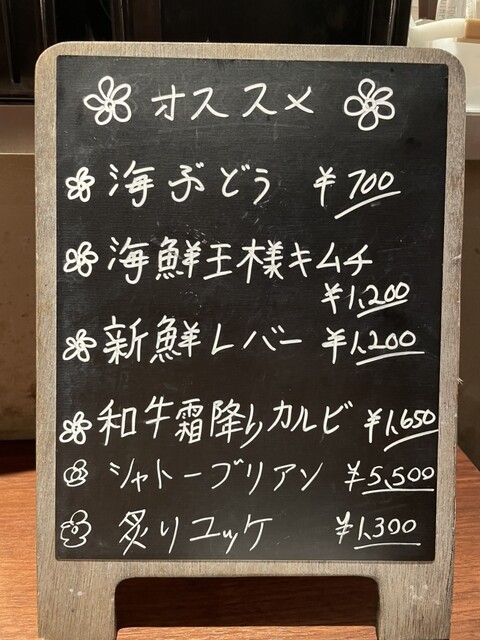 オススメ
海ぶどう ¥700
海鮮王様キムチ
¥1,200
新鮮レバー ¥1,200
和牛霜降りカルビ ¥1,650
シャトーブリアン ¥5,500
炙りユッケ ¥1,300